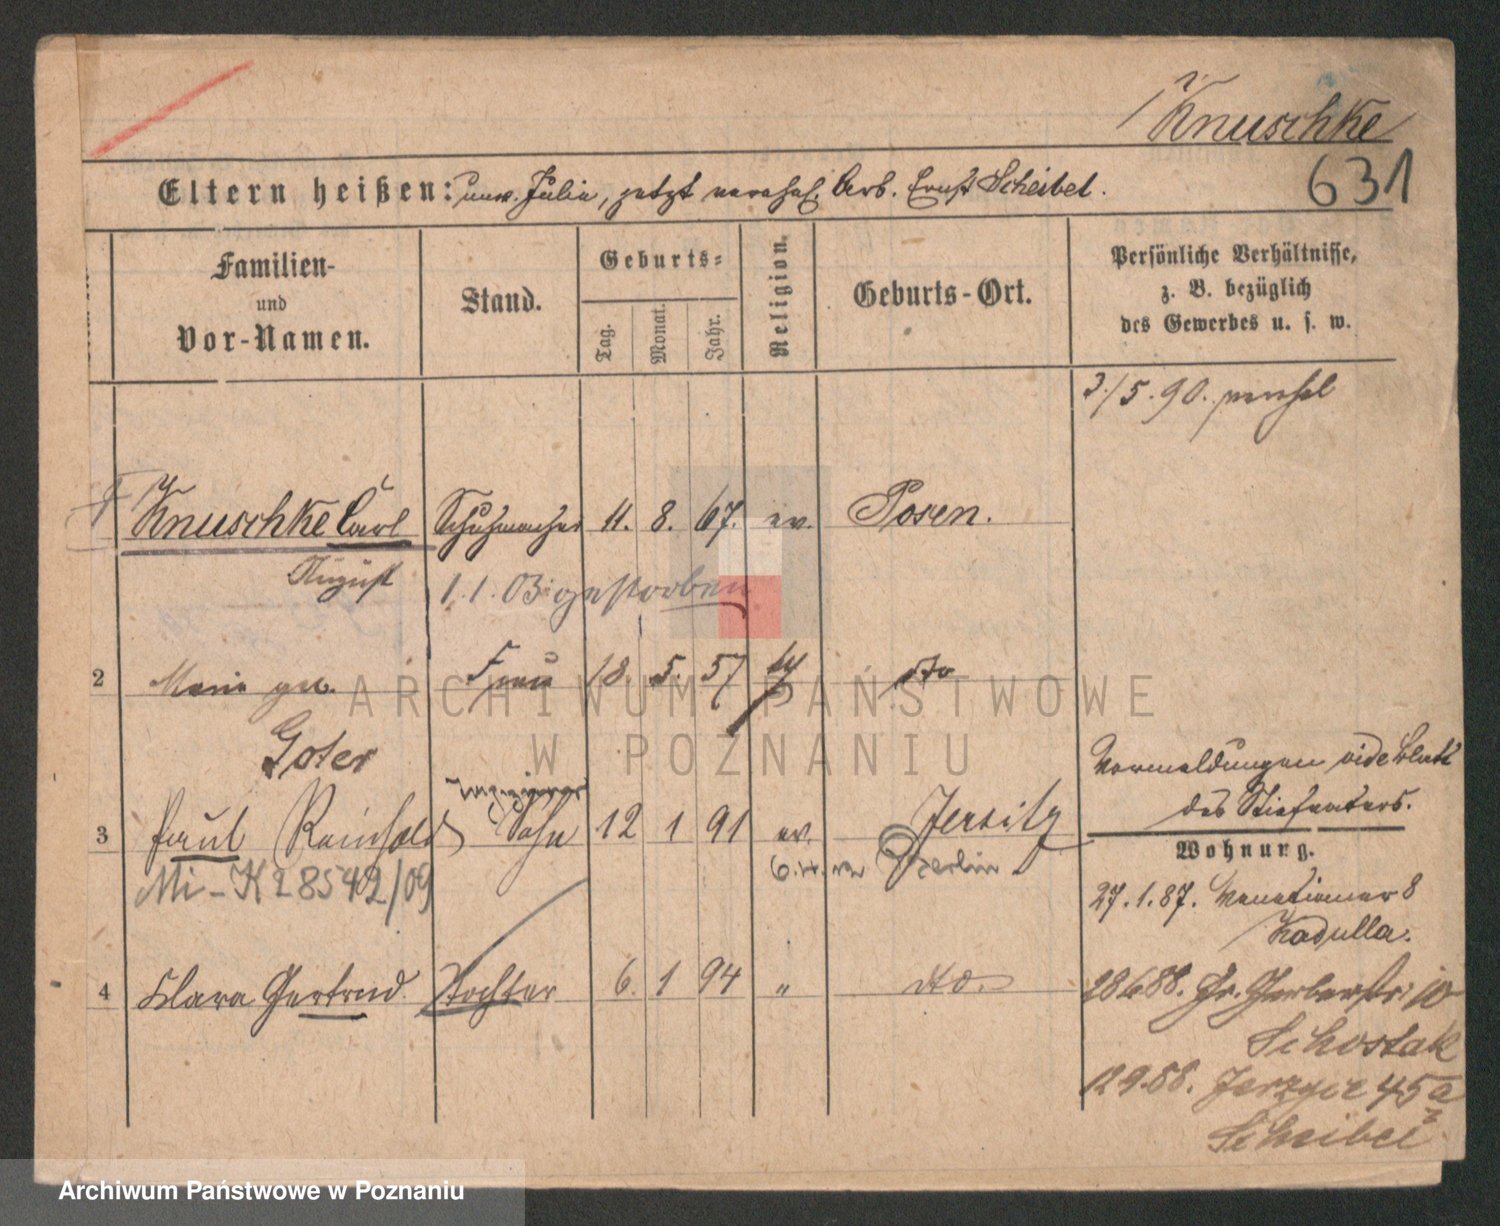 Knuschke
Eltern heißen: unv. Julie, jetzt verehel. Arb. Ernst Scheibel.
631
Familien-
und
Vor-Namen.
Stand.
Geburts-
Tag.
Monat.
Jahr.
Religion.
Geburts-Ort.
Persönliche Verhältnisse,
z. B. bezüglich
des Gewerbes u. s. w.
3/5.90. verehel
Knuschke Carl Schuhmacher 11. 8. 67. ev. Posen.
August 1.1.03 gestorben
2 Marie geb. Frau 18. 5. 57 dto
Goter
3 Paul Reinhold Sohn 12 1 91 ev. Jersitz
Mi-K 28542/09 Berlin
4 Klara Gertrud Tochter 6. 1 94 " dto.
Vormeldungen vide Blatt
des Stiefvaters.
Wohnung.
27.1.87. Venetianer 8
Kadulla.
28688. Gr. Gerberstr. 10
Schostak
12.9.88. Jerzyce 45a
Scheibel
ARCHIWUM PAŃSTWOWE
W POZNANIU
Archiwum Państwowe w Poznaniu